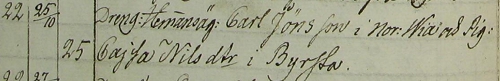 22 25/10 Dreng: Hemmansäg: Carl Jöns son i Nor: Wia och Pig:
25 Cajsa Nils dtr i Byrsta.
22 27